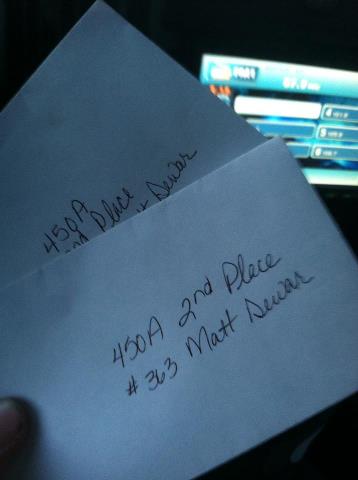 450A
2nd Place
Matt Dewar
450A 2nd Place
#363 Matt Dewar
FM1
4
5
6